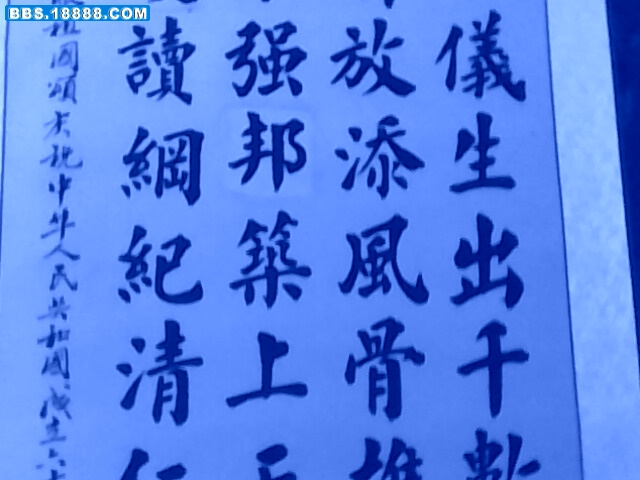 BBS.18888.COM
儀生出千數
放添風骨雄
强邦築上
讀綱紀清
祖國頌 慶祝中华人民共和國成立六十